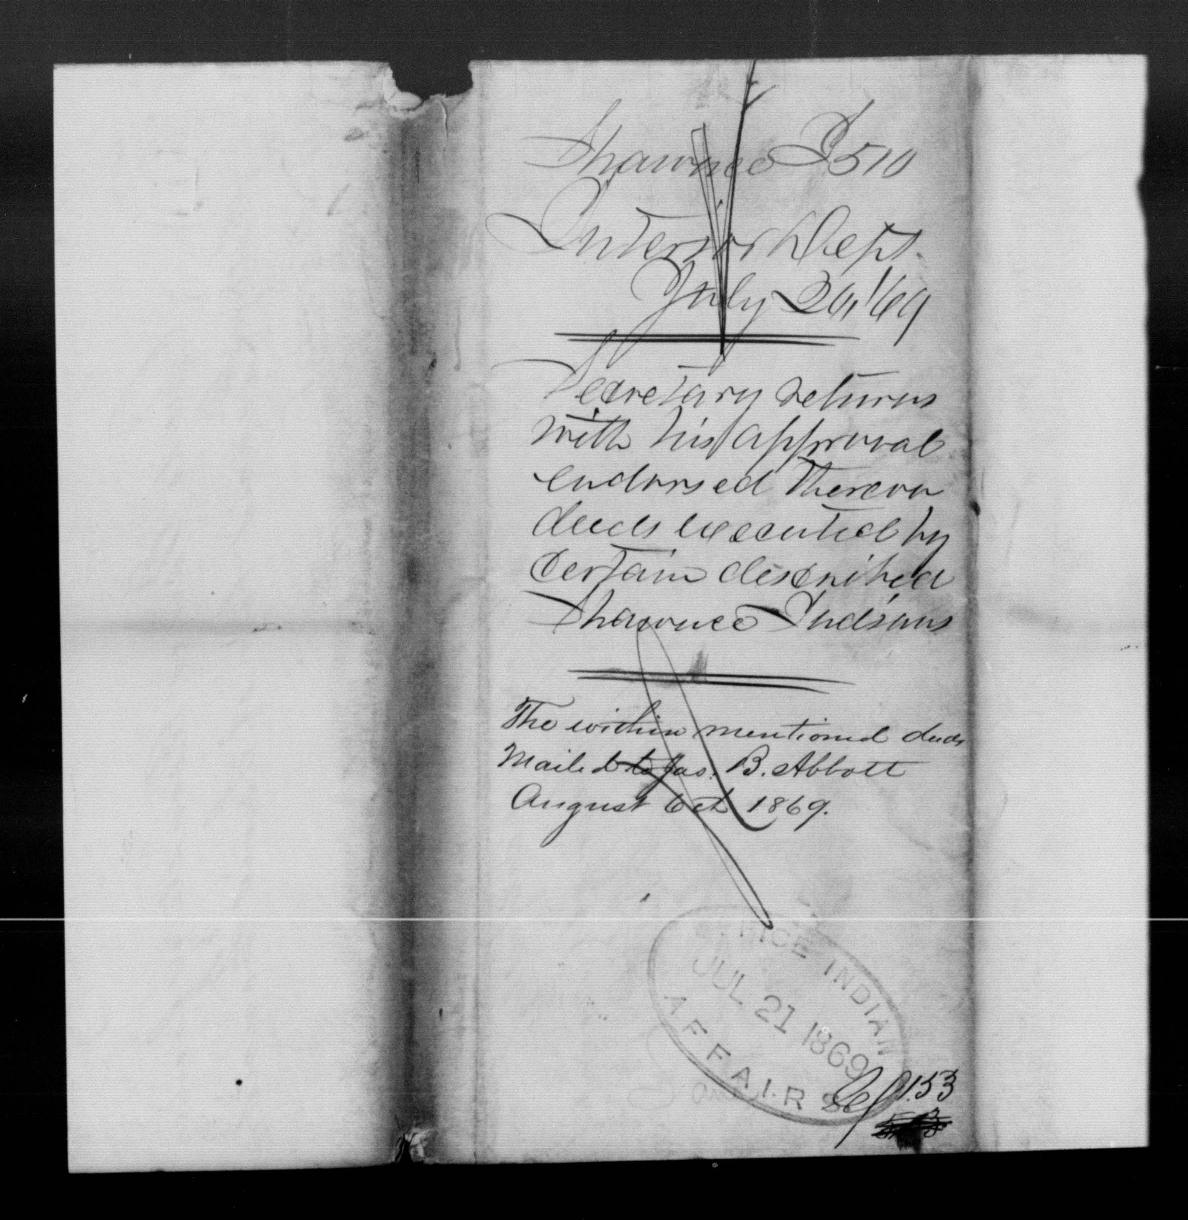 Shawnee I 510
Interior Dept.
July 20, '69
Secretary returns
with his approval
endorsed thereon
deeds executed by
certain described
Shawnee Indians
The within mentioned deeds
Mailed to Jas. B. Abbott
August 6th 1869.
OFFICE INDIAN
JUL 21 1869
AFFAIRS
153